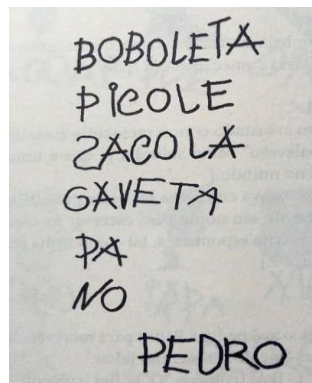 BOBOLETA
PICOLE
ZACOLA
GAVETA
PA
NO
PEDRO